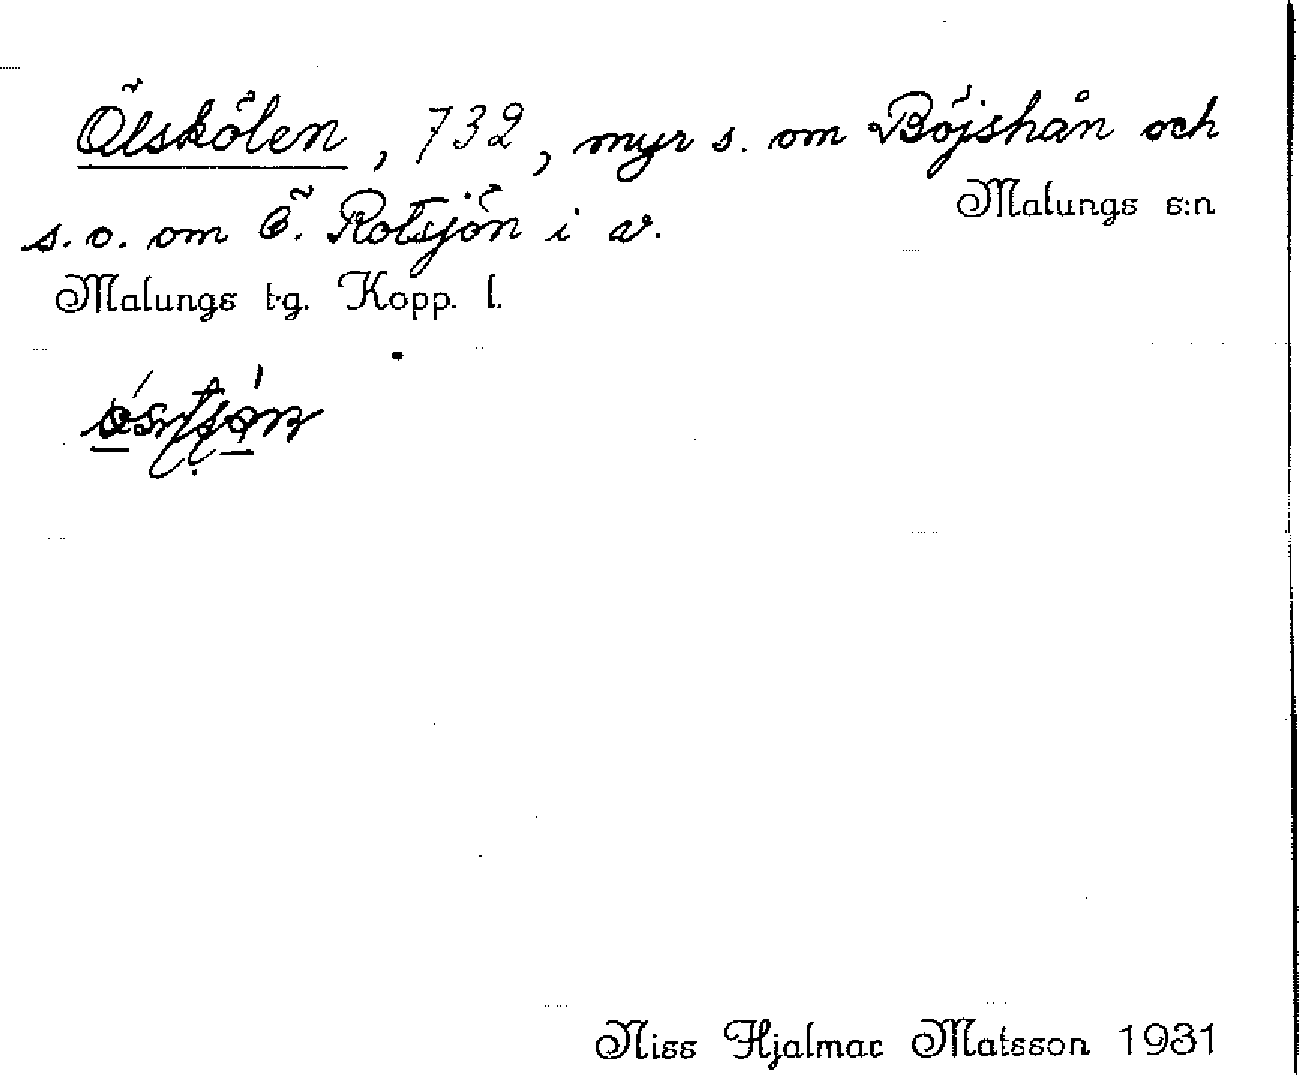 Ölskölen, 732, myr s. om Böjshån och
Malungs s:n
s.o. om Ö. Rotsjön i v.
Malungs t-g. Kopp. l.
Niss Hjalmar Matsson 1931